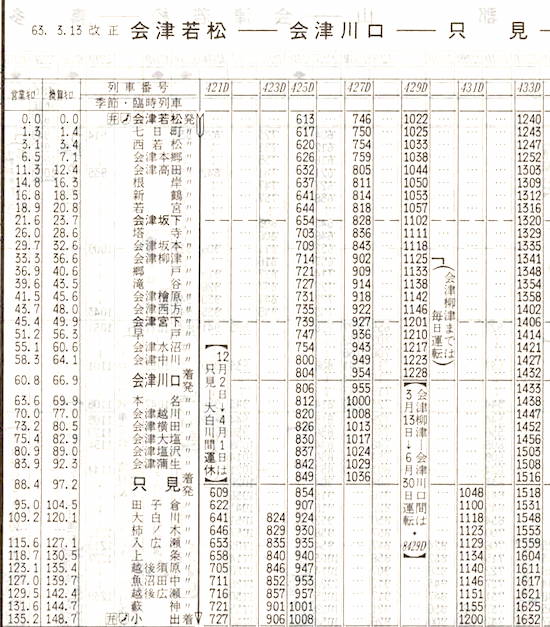 63. 3.13 改正 会津若松 ── 会津川口 ── 只 見 ─
営業キロ 換算キロ 列車番号 421D 423D 425D 427D 429D 431D 433D
季節・臨時列車
0.0 0.0 会津若松 発 613 746 1022 1240
1.3 1.4 七日町 〃 617 750 1025 1243
3.1 3.4 西若松 〃 620 754 1033 1247
6.5 7.1 会津本郷 〃 626 759 1038 1252
11.3 12.4 会津高田 〃 632 805 1044 1303
14.8 16.3 根岸 〃 637 811 1050 1309
16.8 18.5 新鶴 〃 641 814 1053 1312
18.9 20.8 若宮 〃 644 818 1057 1316
21.6 23.7 会津坂下 〃 654 828 1102 1320
26.0 28.6 塔寺 〃 703 836 1111 1328
29.7 32.6 会津坂本 〃 709 843 1118 1335
33.3 36.6 会津柳津 〃 714 902 1125 1341
36.9 40.6 郷戸 〃 721 909 1133 1348
39.6 43.5 滝谷 〃 727 914 1138 1354
41.5 45.6 会津檜原 〃 731 918 1142 1358
43.7 48.0 会津西方 〃 735 922 1146 1402
45.4 49.9 会津宮下 〃 739 927 1201 1406
51.2 56.3 早戸 〃 747 936 1210 1414
55.1 60.6 会津水沼 〃 754 943 1217 1421
58.3 64.1 会津中川 〃 800 949 1223 1427
60.8 66.9 会津川口 着 804 954 1228 1432
発 806 955 1433
63.6 69.9 本名 〃 812 1000 1438
70.0 77.0 会津越川 〃 820 1008 1446
73.2 80.5 会津横田 〃 826 1013 1452
75.4 82.9 会津大塩 〃 830 1017 1456
80.9 89.0 会津塩沢 〃 837 1024 1503
83.9 92.3 会津蒲生 〃 842 1029 1508
88.4 97.2 只見 着 849 1036 1516
発 609 854 1048 1518
95.0 104.5 田子倉 〃 622 907 1100 1531
109.2 120.1 大白川 〃 641 824 924 1118 1548
柿ノ木 〃 646 829 930 1123 1553
115.6 127.1 入広瀬 〃 653 835 935 1129 1559
118.7 130.5 上条 〃 658 840 940 1134 1604
123.1 135.4 越後須原 〃 705 846 947 1140 1611
127.0 139.7 魚沼田中 〃 711 852 953 1146 1617
129.5 142.4 越後広瀬 〃 716 857 957 1151 1621
131.6 144.7 藪神 〃 721 901 1001 1155 1625
135.2 148.7 小出 着 727 906 1008 1200 1632
【12月2日→4月1日は只見―大白川間運休】
(会津柳津までは毎日運転)
【3月13日→6月30日運転・会津柳津―会津川口間は8429D】